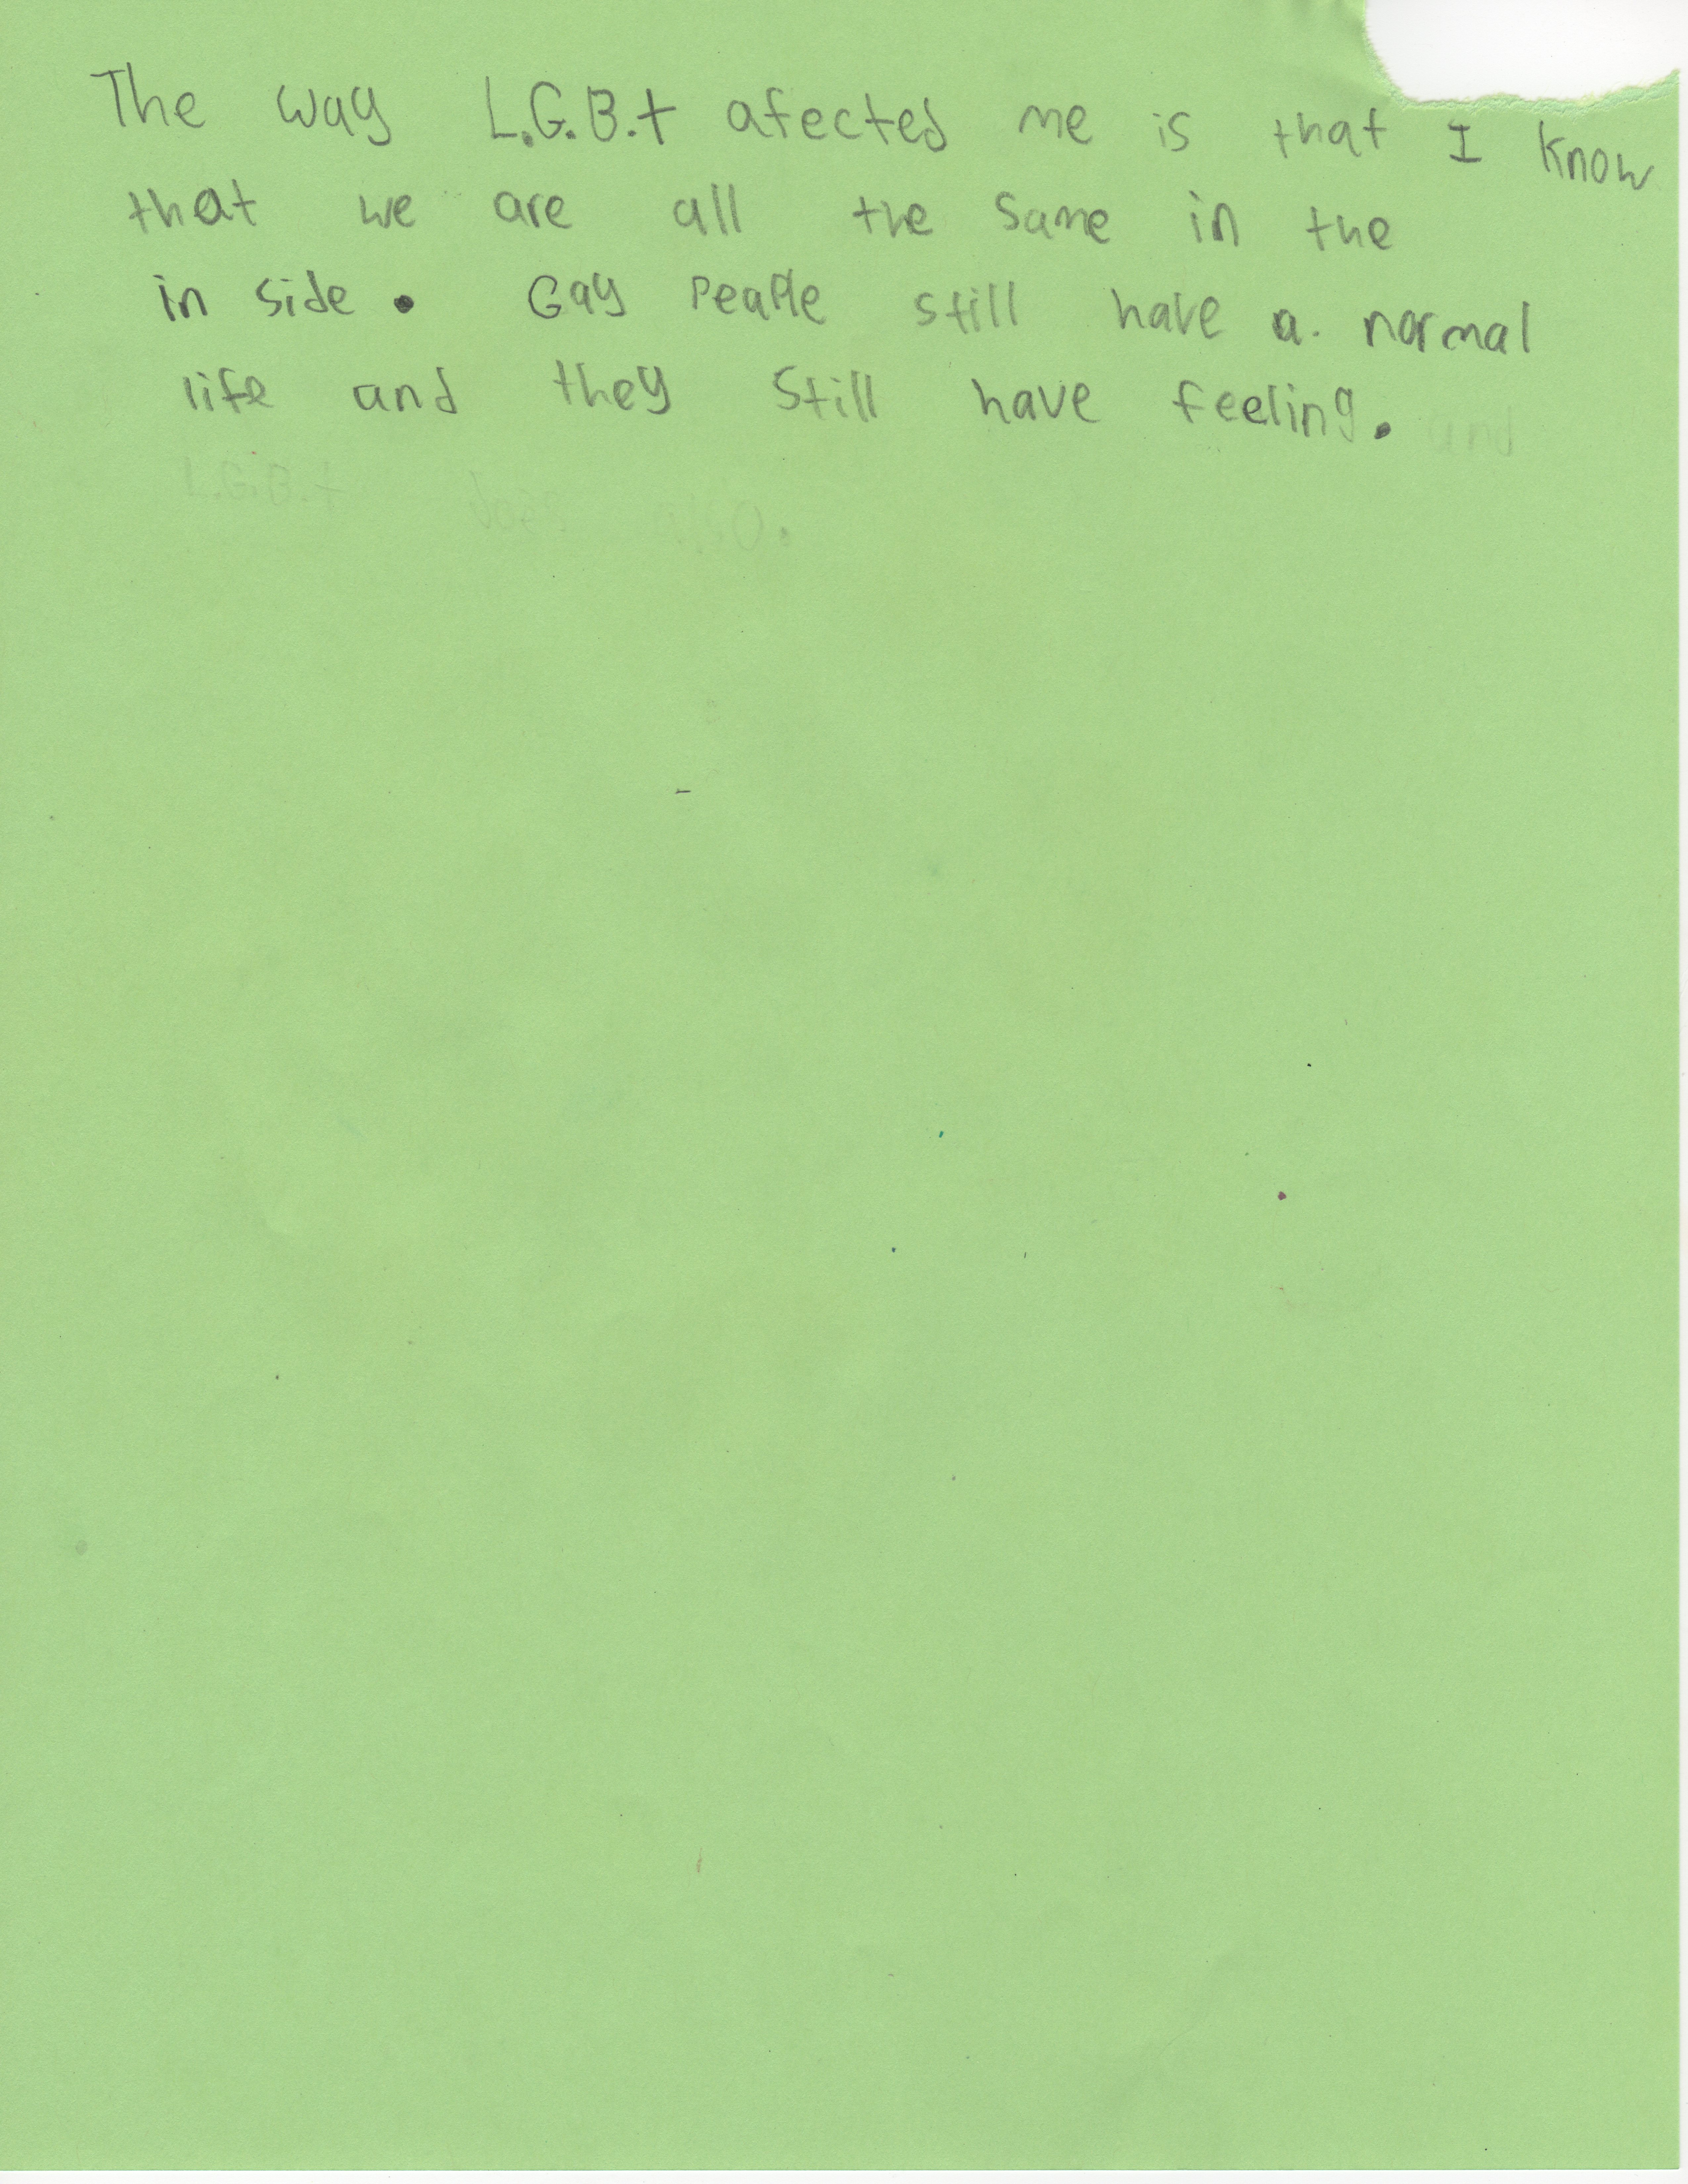 The way L.G.B.t afected me is that I know
that we are all the same in the
in side. Gay peaple still have a normal
life and they still have feeling. and
L.G.B.t does also.